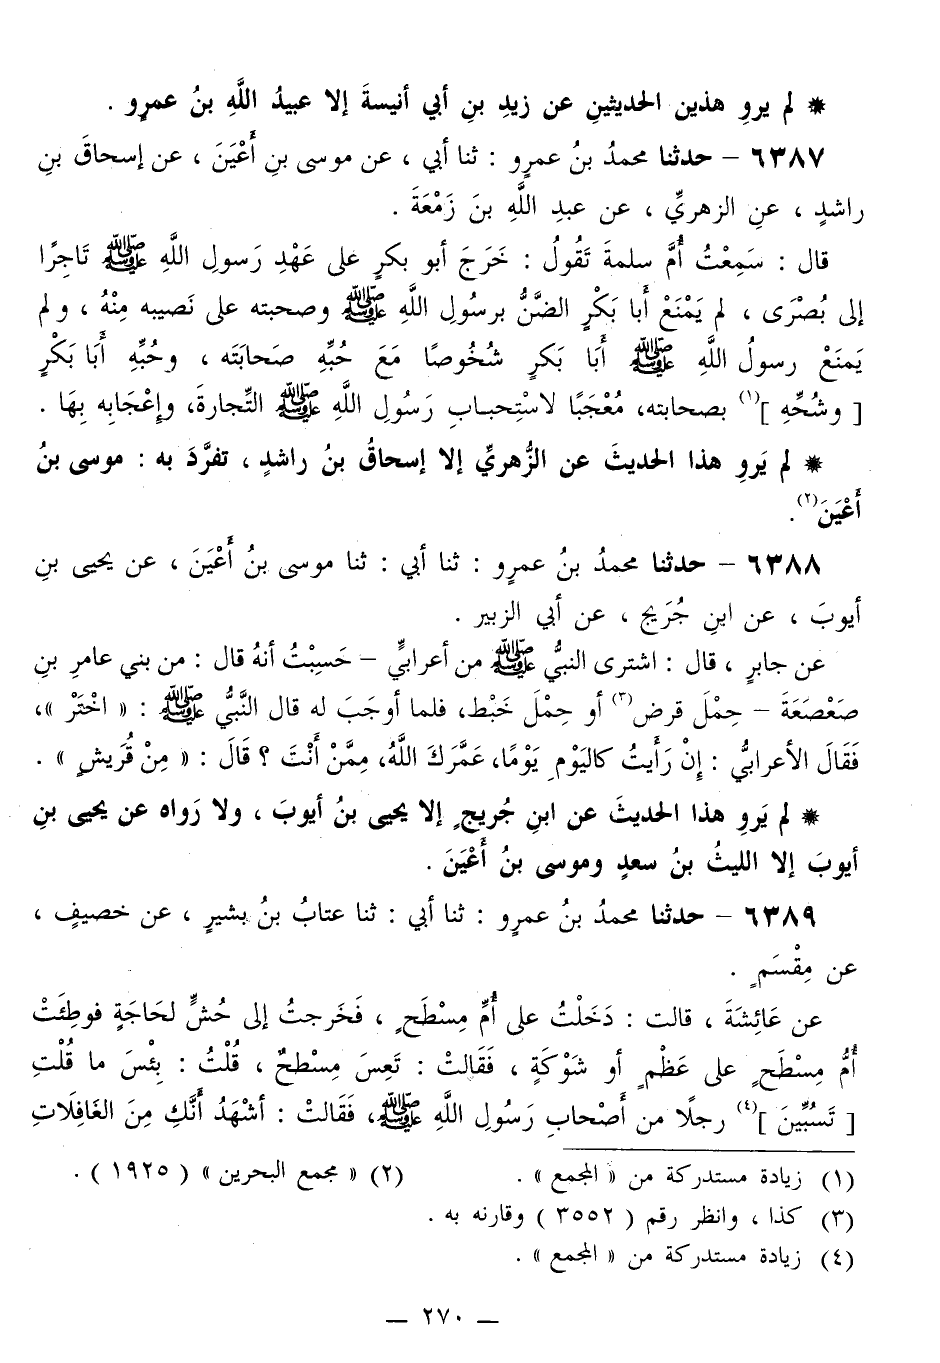 * لم يروِ هذين الحديثينِ عن زيدِ بنِ أبي أنيسةَ إلا عبيدُ اللَّهِ بنُ عمرٍو .
٦٣٨٧ - حدثنا محمدُ بنُ عمرٍو : ثنا أبي ، عن موسى بنِ أَعْيَنَ ، عن إسحاقَ بنِ
راشدٍ ، عنِ الزهريِّ ، عن عبدِ اللَّهِ بنَ زَمْعَةَ .
قال : سَمِعْتُ أُمَّ سلمةَ تَقُولُ : خَرَجَ أبو بكرٍ على عَهْدِ رَسولِ اللَّهِ ﷺ تَاجِرًا
إلى بُصْرَى ، لم يَمْنَعْ أَبَا بَكْرٍ الضَّنُّ برسُولِ اللَّهِ ﷺ وصحبته على نَصيبه مِنْهُ ، ولم
يَمنَعْ رسولُ اللَّهِ ﷺ أَبَا بَكرٍ شُخُوصًا مَعَ حُبِّهِ صَحابَتَه ، وحُبِّهِ أَبَا بَكْرٍ
[ وشُحِّهِ ](١) بصحابته، مُعْجَبًا لاسْتِحبابِ رَسُولِ اللَّهِ ﷺ التِّجارةَ، وإعْجَابِه بِهَا .
* لم يَروِ هذا الحديثَ عن الزُّهريِّ إلا إسحاقُ بنُ راشدٍ ، تفرَّدَ به : موسى بنُ
أَعْيَنَ(٢).
٦٣٨٨ - حدثنا محمدُ بنُ عمرٍو : ثنا أبي : ثنا موسى بنُ أَعْيَنَ ، عن يحيى بنِ
أيوبَ ، عن ابنِ جُرَيجٍ ، عن أبي الزبيرِ .
عن جابرٍ ، قال : اشترى النبيُّ ﷺ من أعرابيٍّ - حَسِبْتُ أنهُ قال : من بني عامرِ بنِ
صَعْصَعَةَ - حِمْلَ قرض(٣) أو حِمْلَ خَبْط، فلما أوجَبَ له قال النَّبيُّ ﷺ : « اخْتَرْ »،
فَقَالَ الأعرابيُّ : إنْ رَأَيتُ كاليَوْمِ يَوْمًا، عَمَّرَكَ اللَّهُ، مِمَّنْ أَنْتَ ؟ قَالَ : « مِنْ قُريشٍ » .
* لم يَروِ هذا الحديثَ عن ابنِ جُريجٍ إلا يحيى بنُ أيوبَ ، ولا رَواه عن يحيى بنِ
أيوبَ إلا الليثُ بنُ سعدٍ وموسى بنُ أَعْيَنَ .
٦٣٨٩ - حدثنا محمدُ بنُ عمرٍو : ثنا أبي : ثنا عتابُ بنُ بشيرٍ ، عن خصيفٍ ،
عن مِقْسَمٍ .
عن عَائِشَةَ ، قالت : دَخَلْتُ على أُمِّ مِسْطَحٍ ، فَخَرجتُ إلى حُشٍّ لحَاجَةٍ فوطِئَتْ
أُمُّ مِسْطَحٍ على عَظْمٍ أو شَوْكَةٍ ، فَقَالتْ : تَعِسَ مِسْطحٌ ، قُلْتُ : بِئْسَ ما قُلْتِ
[ تَسُبِّينَ ](٤) رجلًا من أَصْحابِ رَسُولِ اللَّهِ ﷺ، فَقَالتْ : أشْهَدُ أَنَّكِ مِنَ الغَافِلَاتِ
(١) زيادة مستدركة من « المجمع » . (٢) « مجمع البحرين » ( ١٩٢٥ ) .
(٣) كذا ، وانظر رقم ( ٣٥٥٢ ) وقارنه به .
(٤) زيادة مستدركة من « المجمع » .
— ٢٧٠ —